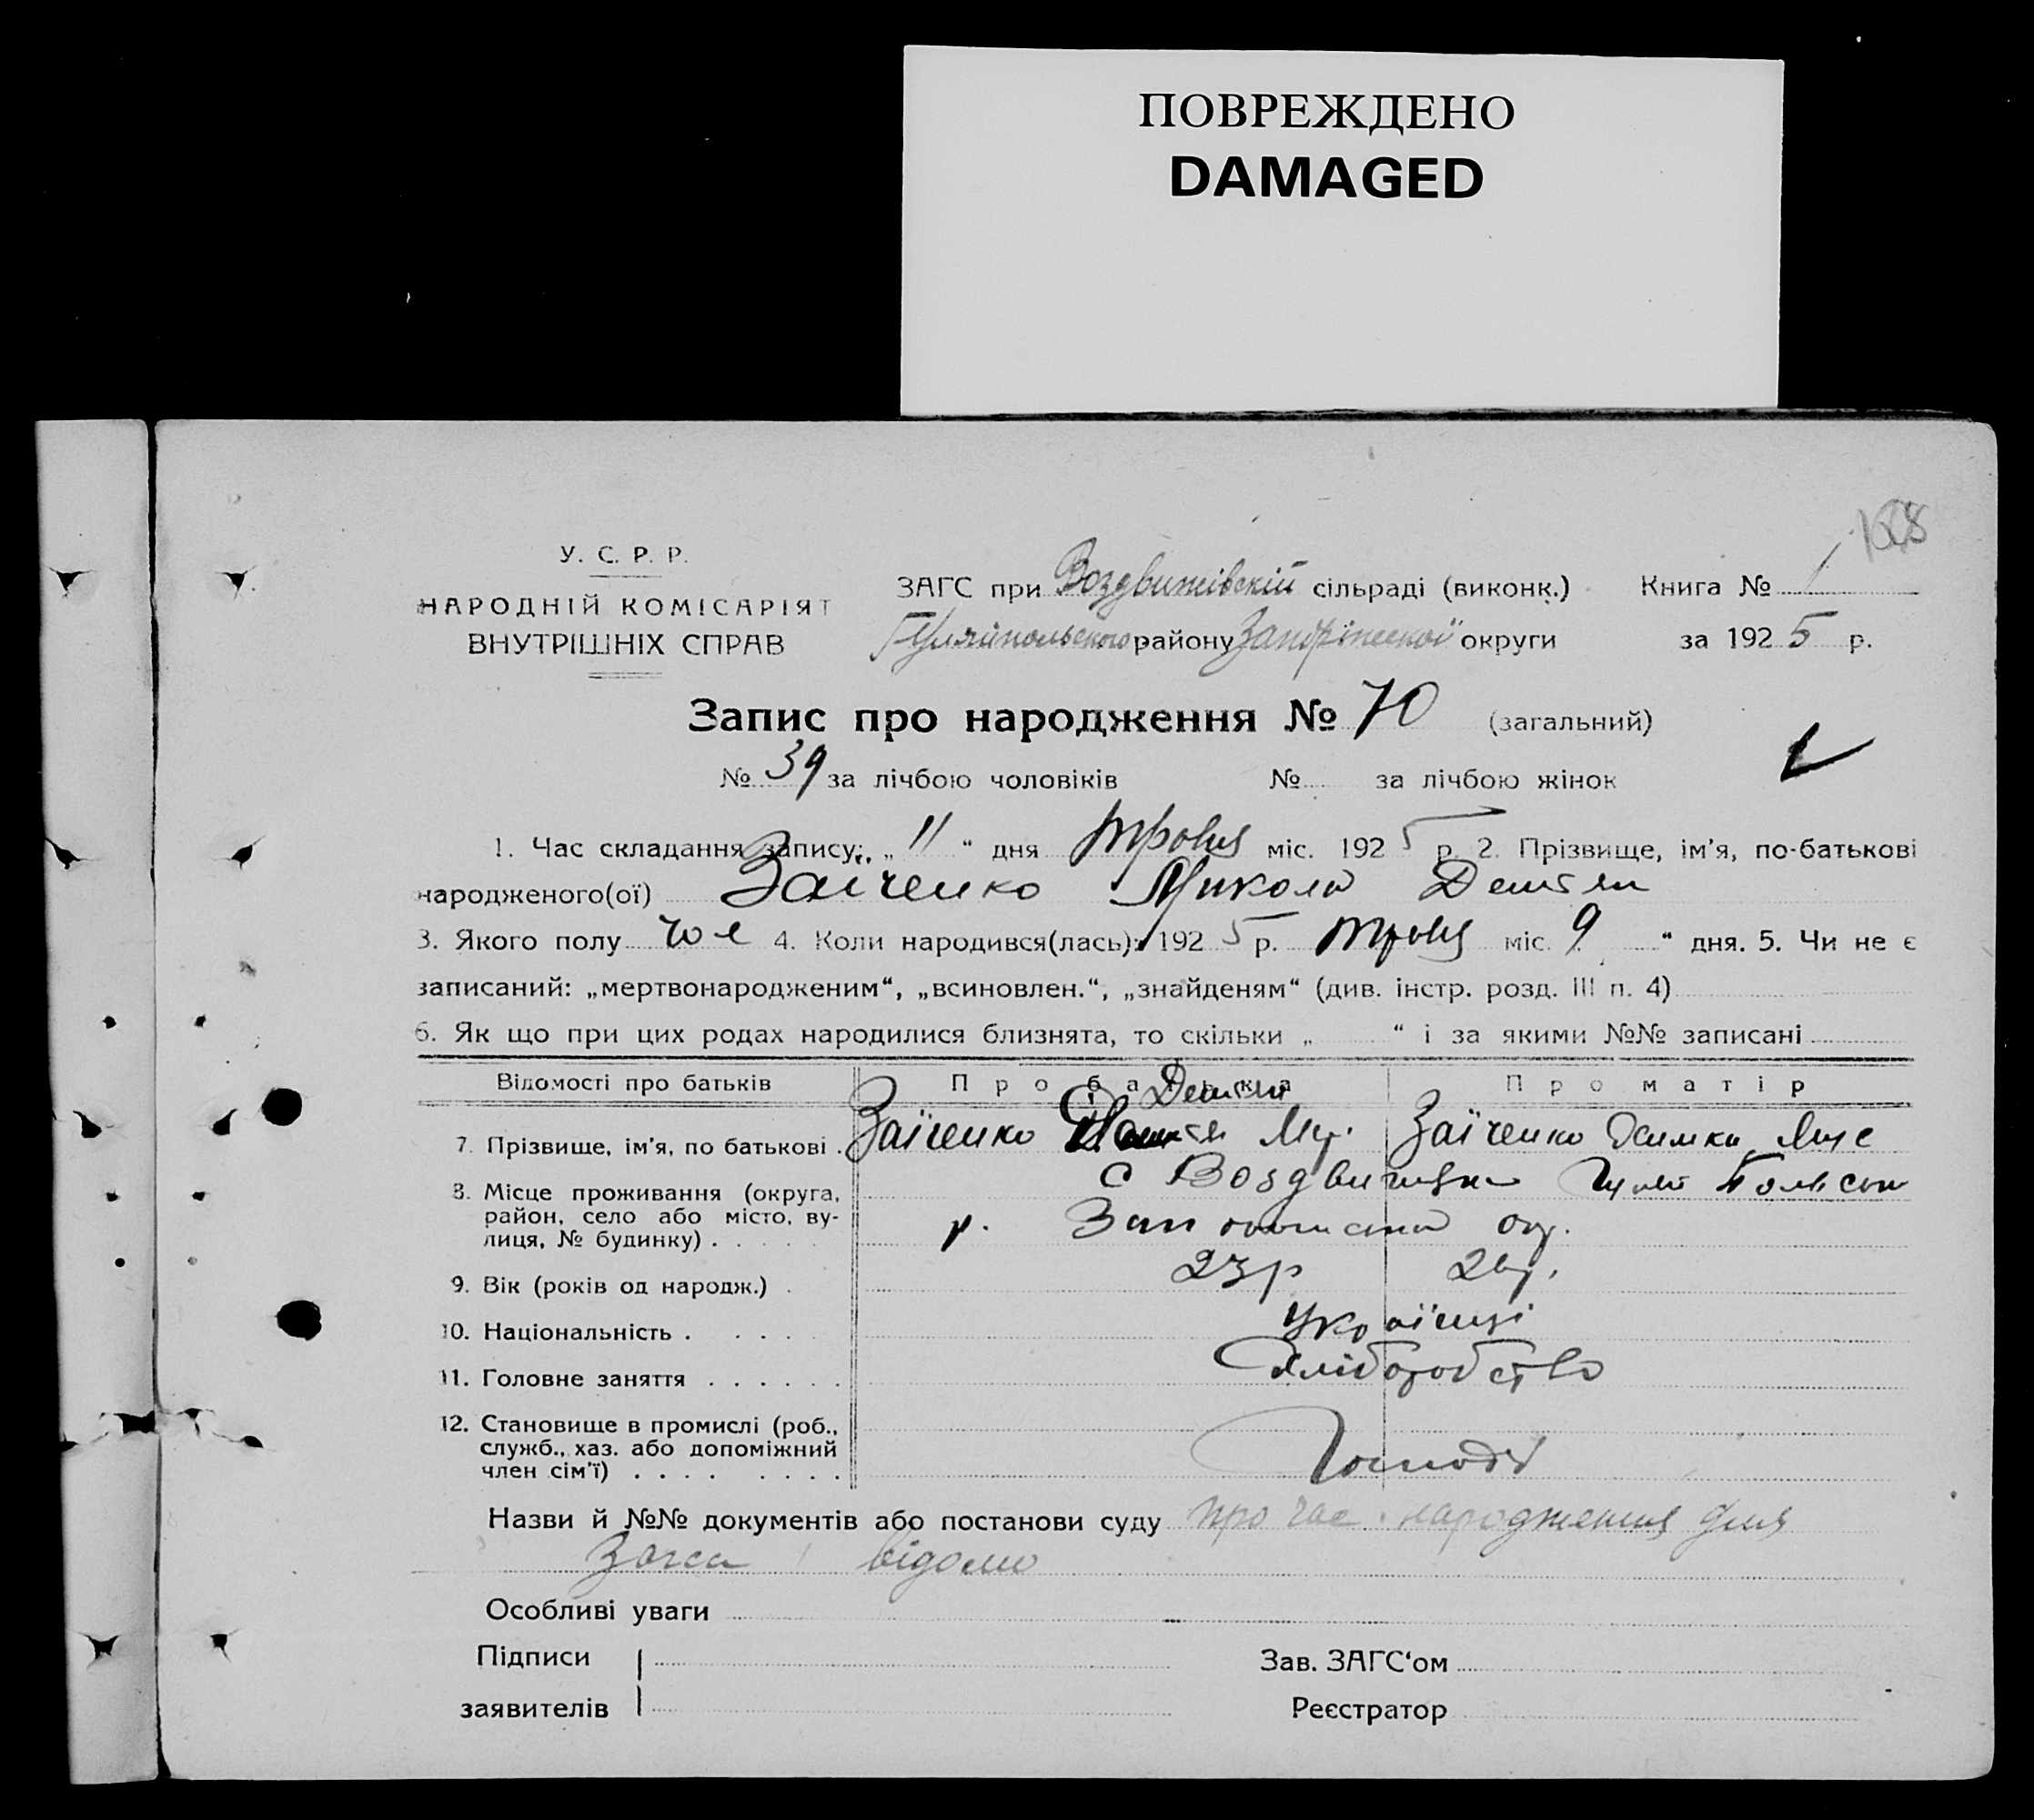 ПОВРЕЖДЕНО
DAMAGED
168
У. С. Р. Р.
НАРОДНІЙ КОМІСАРІЯТ
ВНУТРІШНІХ СПРАВ
ЗАГС при Воздвижівській сільраді (виконк.) Книга № 1
Гуляйпольского району Запоріжської округи за 1925 р.
Запис про народження № 70 (загальний)
№ 39 за лічбою чоловіків № за лічбою жінок
1. Час складання запису: „ 11 “ дня міс. 1925 р. 2. Прізвище, ім'я, по-батькові
народженого(ої) Заіченко Микола
3. Якого полу чол 4. Коли народився(лась): 1925 р. міс. 9 “ дня. 5. Чи не є
записаний: „мертвонародженим“, „всиновлен.“, „знайденям“ (див. інстр. розд. III п. 4)
6. Як що при цих родах народилися близнята, то скільки „ “ і за якими №№ записані
Відомості про батьків Про батька Про матір
7. Прізвище, ім'я, по батькові . Заїченко Заїченко
8. Місце проживання (округа, с Воздвижівка
район, село або місто, ву- р. ок.
лиця, № будинку) . . . . .
9. Вік (років од народж.) . 23 р
10. Національність . . . . . Українці
11. Головне заняття . . . . . . Хліборобство
12. Становище в промислі (роб.,
служб., хаз. або допоміжний
член сім'ї) . . . . . . . .
Назви й №№ документів або постанови суду про час народження для
Загса відомо
Особливі уваги
Підписи Зав. ЗАГС‘ом
заявителів Реєстратор